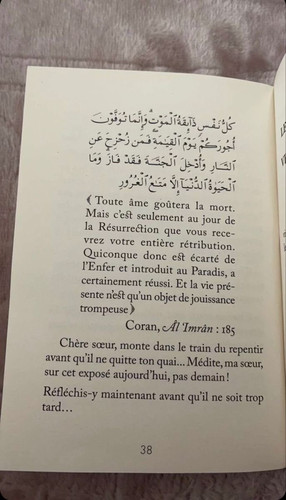 كُلُّ نَفْسٍ ذَآئِقَةُ ٱلْمَوْتِ ۗ وَإِنَّمَا تُوَفَّوْنَ
أُجُورَكُمْ يَوْمَ ٱلْقِيَٰمَةِ ۖ فَمَن زُحْزِحَ عَنِ
ٱلنَّارِ وَأُدْخِلَ ٱلْجَنَّةَ فَقَدْ فَازَ ۗ وَمَا
ٱلْحَيَوٰةُ ٱلدُّنْيَآ إِلَّا مَتَٰعُ ٱلْغُرُورِ
﴾ Toute âme goûtera la mort.
Mais c'est seulement au jour de
la Résurrection que vous rece-
vrez votre entière rétribution.
Quiconque donc est écarté de
l'Enfer et introduit au Paradis, a
certainement réussi. Et la vie pré-
sente n'est qu'un objet de jouissance
trompeuse ﴿
Coran, Âl 'Imrân : 185
Chère sœur, monte dans le train du repentir
avant qu'il ne quitte ton quai... Médite, ma sœur,
sur cet exposé aujourd'hui, pas demain !
Réfléchis-y maintenant avant qu'il ne soit trop
tard...
38